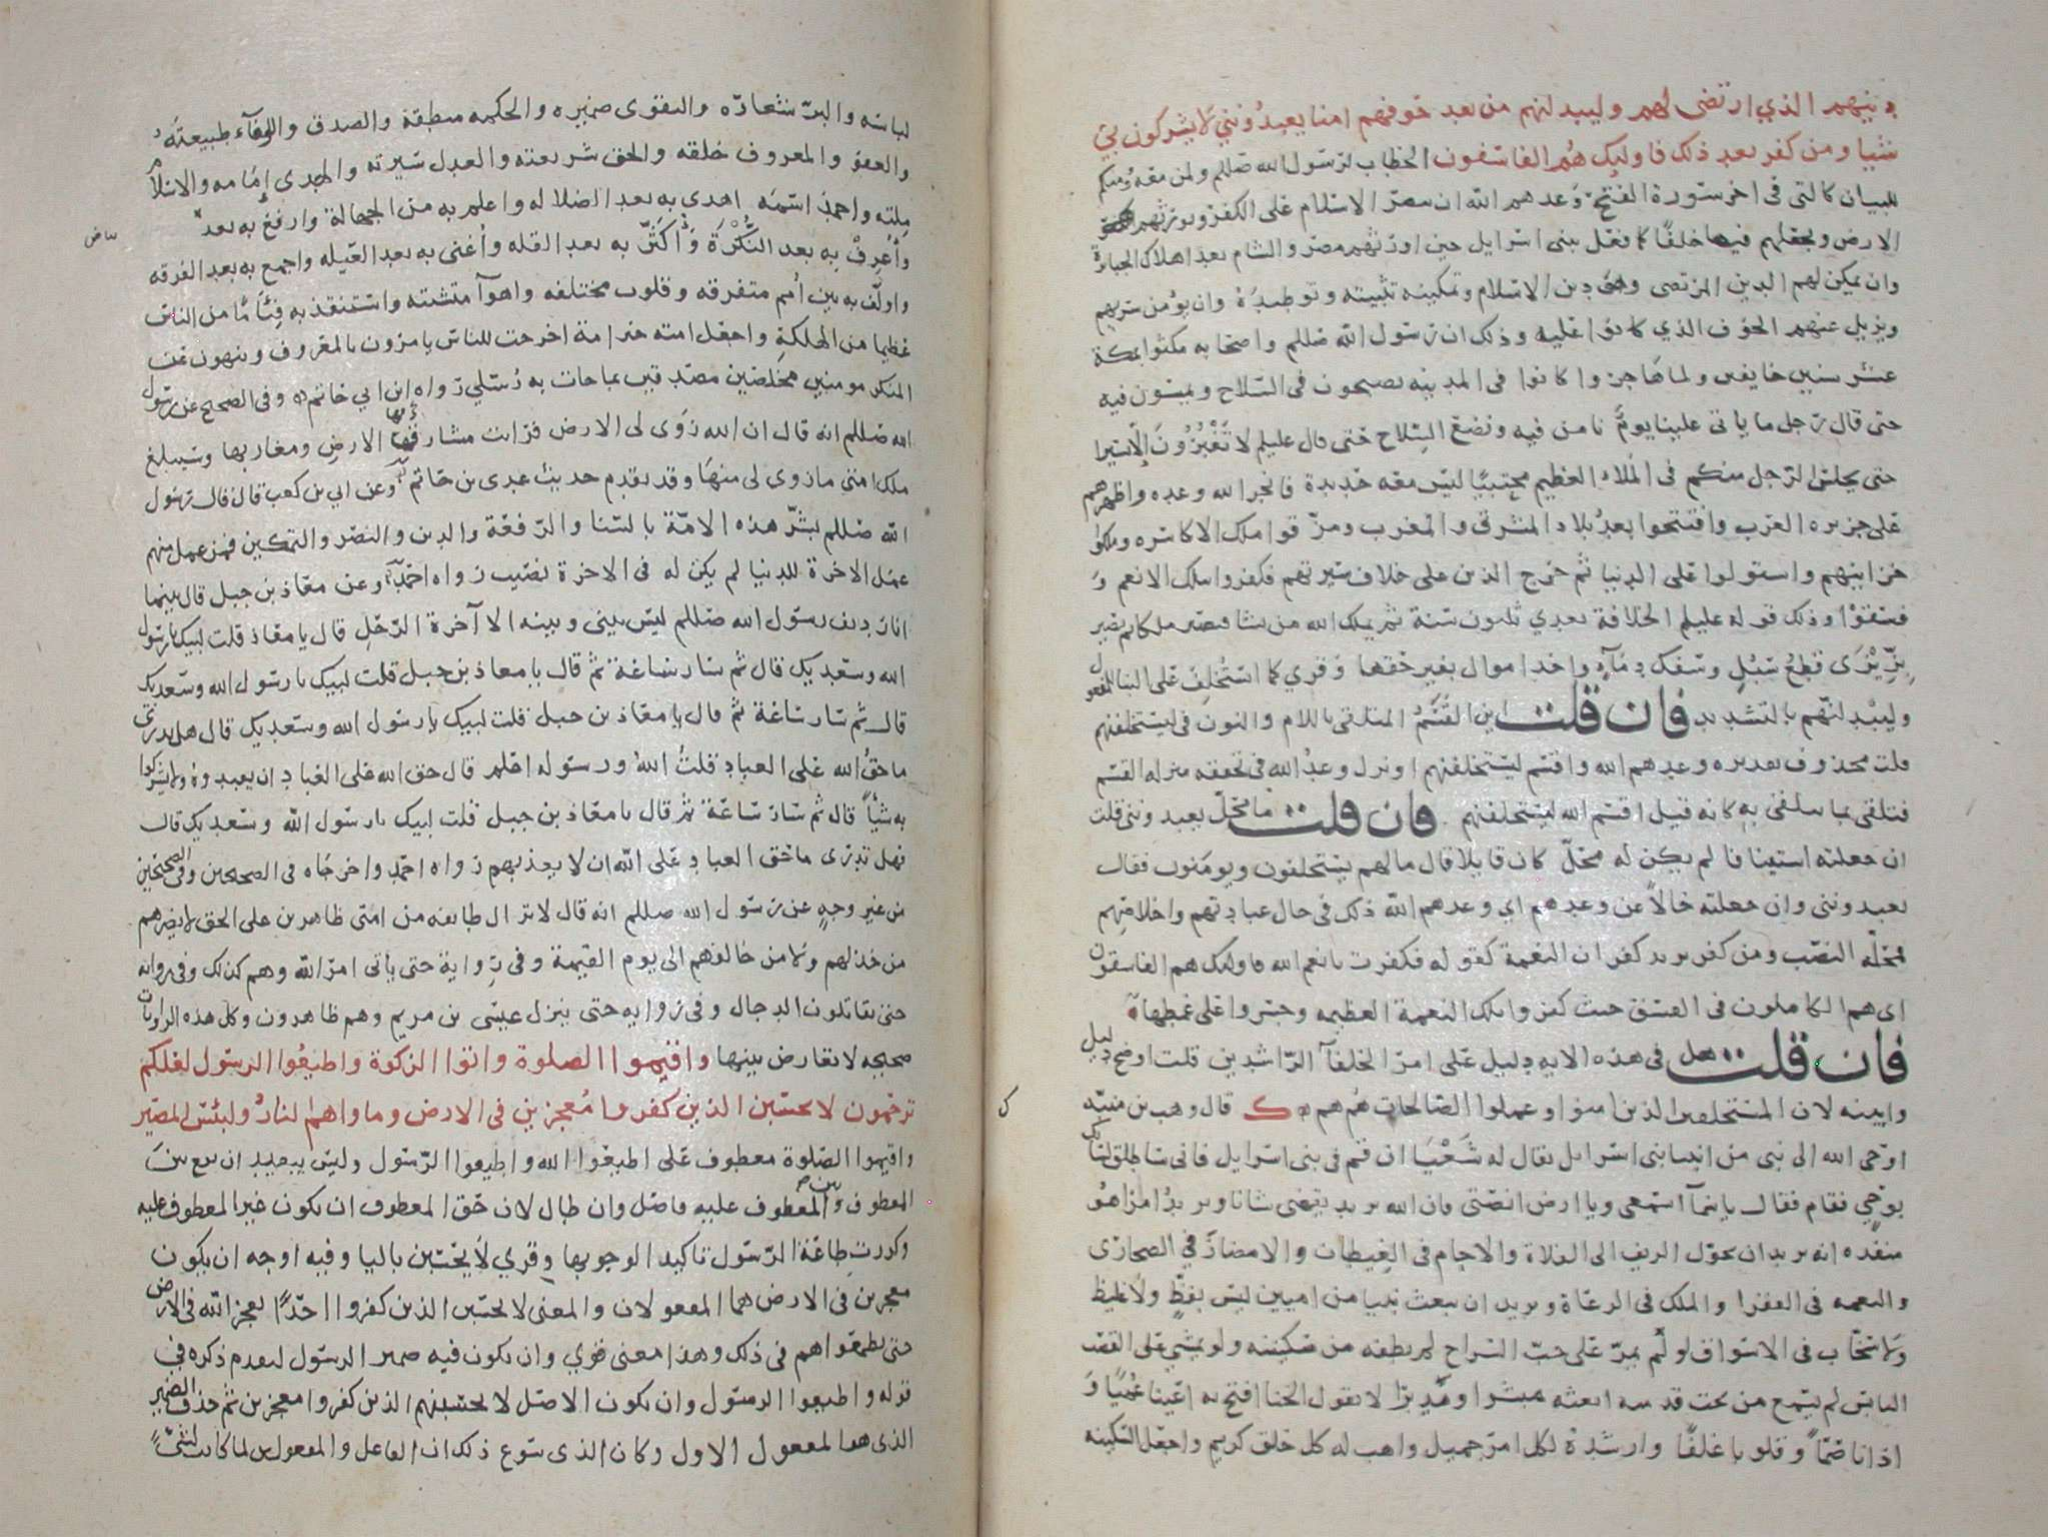 دينهم الذي ارتضى لهم وليبدلنهم من بعد خوفهم امنا يعبدونني لا يشركون بي
شيا ومن كفر بعد ذلك فاوليك هم الفاسقون الخطاب لرسول الله صللم ولمن معه ومنكم
للبيان كالتي في اخر سورة الفتح وعدهم الله ان ينصر الاسلام على الكفر ويورثهم
الارض ويجعلهم فيها خلفا كما فعل ببني اسرايل حين اورثهم مصر والشام بعد اهلاك الجبابرة
وان يمكن لهم الدين المرتضى وهو دين الاسلام وتمكينه تثبيته وتوطيده وان يؤمن سربهم
ويزيل عنهم الخوف الذي كانوا عليه وذلك ان رسول الله صللم واصحابه مكثوا بمكة
عشر سنين خايفين ولما هاجروا كانوا في المدينه يصبحون في السلاح ويمسون فيه
حتى قال رجل ما ياتي علينا يوم نامن فيه ونضع السلاح حتى قال عليلم لا تغبرون الا يسيرا
حتى يجلس الرجل منكم في الملاء العظيم محتبيا ليس معه حديدة فانجز الله وعده واظهرهم
على جزيره العرب وافتتحوا بعد بلاد المشرق والمغرب ومزقوا ملك الاكاسره وملكوا
خزاينهم واستولوا على الدنيا ثم خرج الذين على خلاف سيرتهم فكفروا بتلك الانعم و
فسقوا وذلك قوله عليلم الخلافة بعدي ثلثون سنة ثم يملك الله من يشا فتصير ملكا ثم تصير
بزيزى قطع سبل وسفك دماء واخذ اموال بغير حقها وقري كما استخلف على البنا للمفعول
وليبدلنهم بالتشديد فان قلت اين القسم المتلقى باللام والنون في ليستخلفنهم
قلت محذوف تقديره وعدهم الله واقسم ليستخلفنهم او نزل وعد الله في تحققه منزله القسم
فتلقى بما يتلقى به كانه قيل اقسم الله ليستخلفنهم فان قلت ما محل يعبدونني قلت
ان جعلته استينافا لم يكن له محل كان قايلا قال ما لهم يستخلفون ويومنون فقال
يعبدونني وان جعلته حالا عن وعدهم اي وعدهم الله ذلك في حال عبادتهم واخلاصهم
فمحله النصب ومن كفر يريد كفران النعمة كقوله فكفرت بانعم الله فاوليك هم الفاسقون
اي هم الكاملون في الفسق حيث كفروا تلك النعمة العظيمه وجسروا على غمطها
فان قلت هل في هذه الايه دليل على امر الخلفآ الراشدين قلت اوضح دليل
وابينه لان المستخلفين الذين امنوا وعملوا الصالحات هم هم ك قال وهب بن منبه
اوحى الله الى نبي من انبيا بني اسرايل يقال له شعيا ان قم في بني اسرايل فاني ساطلق لسانك
بوحي فقام فقال يا سمآ استمعي ويا ارض انصتي فان الله يريد يقضي شانا ويريد امرا هو
منفذه انه يريد ان يحول الريف الى الفلاة والاجام في الغيطان والامصار في الصحارى
والنعمه في الفقرا والملك في الرعاة ويريد ان يبعث نبيا من اميين ليس بفظ ولا غليظ
ولا سخاب في الاسواق لو لم يمر على جنب السراج لم يطفه من سكينته ولو يمشي على القصب
اليابس لم يسمع من تحت قدميه ابعثه مبشرا ونذيرا لا يقول الخنا افتح به اعينا عميا و
اذانا صما وقلوبا غلفا وارشده لكل امر جميل واهب له كل خلق كريم واجعل السكينه
لباسه والبر شعاره والتقوى ضميره والحكمه منطقه والصدق والوفآء طبيعته
والعفو والمعروف خلقه والحق شريعته والعدل سيرته والهدى امامه والاسلام
ملته واحمد اسمه اهدي به بعد الضلاله واعلم به من الجهالة وارفع به بعد
بياض
واعرف به بعد النكرة وأكثر به بعد القله وأغني به بعد العيله واجمع به بعد الفرقه
واولف به بين أمم متفرقه وقلوب مختلفه واهوآ متشتته واستنقذ به فئاما من الناس
عظيما من الهلكة واجعل امته خير امة اخرجت للناس يامرون بالمعروف وينهون عن
المنكر مومنين مخلصين مصدقين بما جات به رسلي رواه ابن ابي حاتم وفي الصحيح عن رسول
الله صللم انه قال ان الله زوى لي الارض فرات مشارقها الارض ومغاربها وسيبلغ
ملك امتي ما زوي لي منها وقد تقدم حديث عدي بن حاتم وعن ابي بن كعب قال قال رسول
الله صللم بشر هذه الامة بالسنا والرفعة والدين والنصر والتمكين فمن عمل منهم
عمل الاخرة للدنيا لم يكن له في الاخرة نصيب رواه احمد وعن معاذ بن جبل قال بينما
انا رديف رسول الله صللم ليس بيني وبينه الا آخرة الرحل قال يا معاذ قلت لبيك يا رسول
الله وسعديك قال ثم سار ساعة ثم قال يا معاذ بن جبل قلت لبيك يا رسول الله وسعديك
قال ثم سار ساعة ثم قال يا معاذ بن جبل قلت لبيك يا رسول الله وسعديك قال هل تدري
ما حق الله على العباد قلت الله ورسوله اعلم قال حق الله على العباد ان يعبدوه ولا يشركوا
به شيأ قال ثم سار ساعة ثم قال يا معاذ بن جبل قلت لبيك يا رسول الله وسعديك قال
فهل تدري ما حق العباد على الله ان لا يعذبهم رواه احمد واخرجاه في الصحيحين وفي الصحيحين
من غير وجه عن رسول الله صللم انه قال لا تزال طايفه من امتي ظاهرين على الحق لا يضرهم
من خذلهم ولا من خالفهم الى يوم القيمة وفي رواية حتى ياتي امر الله وهم كذلك وفي روايه
حتى يقاتلون الدجال وفي روايه حتى ينزل عيسى بن مريم وهم ظاهرون وكل هذه الروايات
صحيحه لا تعارض بينها واقيموا الصلوة واتوا الزكوة واطيعوا الرسول لعلكم
ترحمون لا يحسبن الذين كفروا معجزين في الارض وماواهم النار ولبئس المصير
واقيموا الصلوة معطوف على اطيعوا الله واطيعوا الرسول وليس ببعيد ان يقع بين
المعطوف وبين المعطوف عليه فاصل وان طال لان حق المعطوف ان يكون غير المعطوف عليه
وكررت طاعة الرسول تاكيدا لوجوبها وقري لا يحسبن باليا وفيه اوجه ان يكون
معجزين في الارض هما المفعولان والمعنى لا يحسبن الذين كفروا احدا يعجز الله في الارض
حتى يطمعوا هم في ذلك وهذا معنى قوي وان يكون فيه ضمير الرسول لتقدم ذكره في
قوله واطيعوا الرسول وان يكون الاصل لا يحسبنهم الذين كفروا معجزين ثم حذف الضمير
الذي هو المفعول الاول وكان الذي سوغ ذلك ان الفاعل والمفعولين لما كانت لشئ